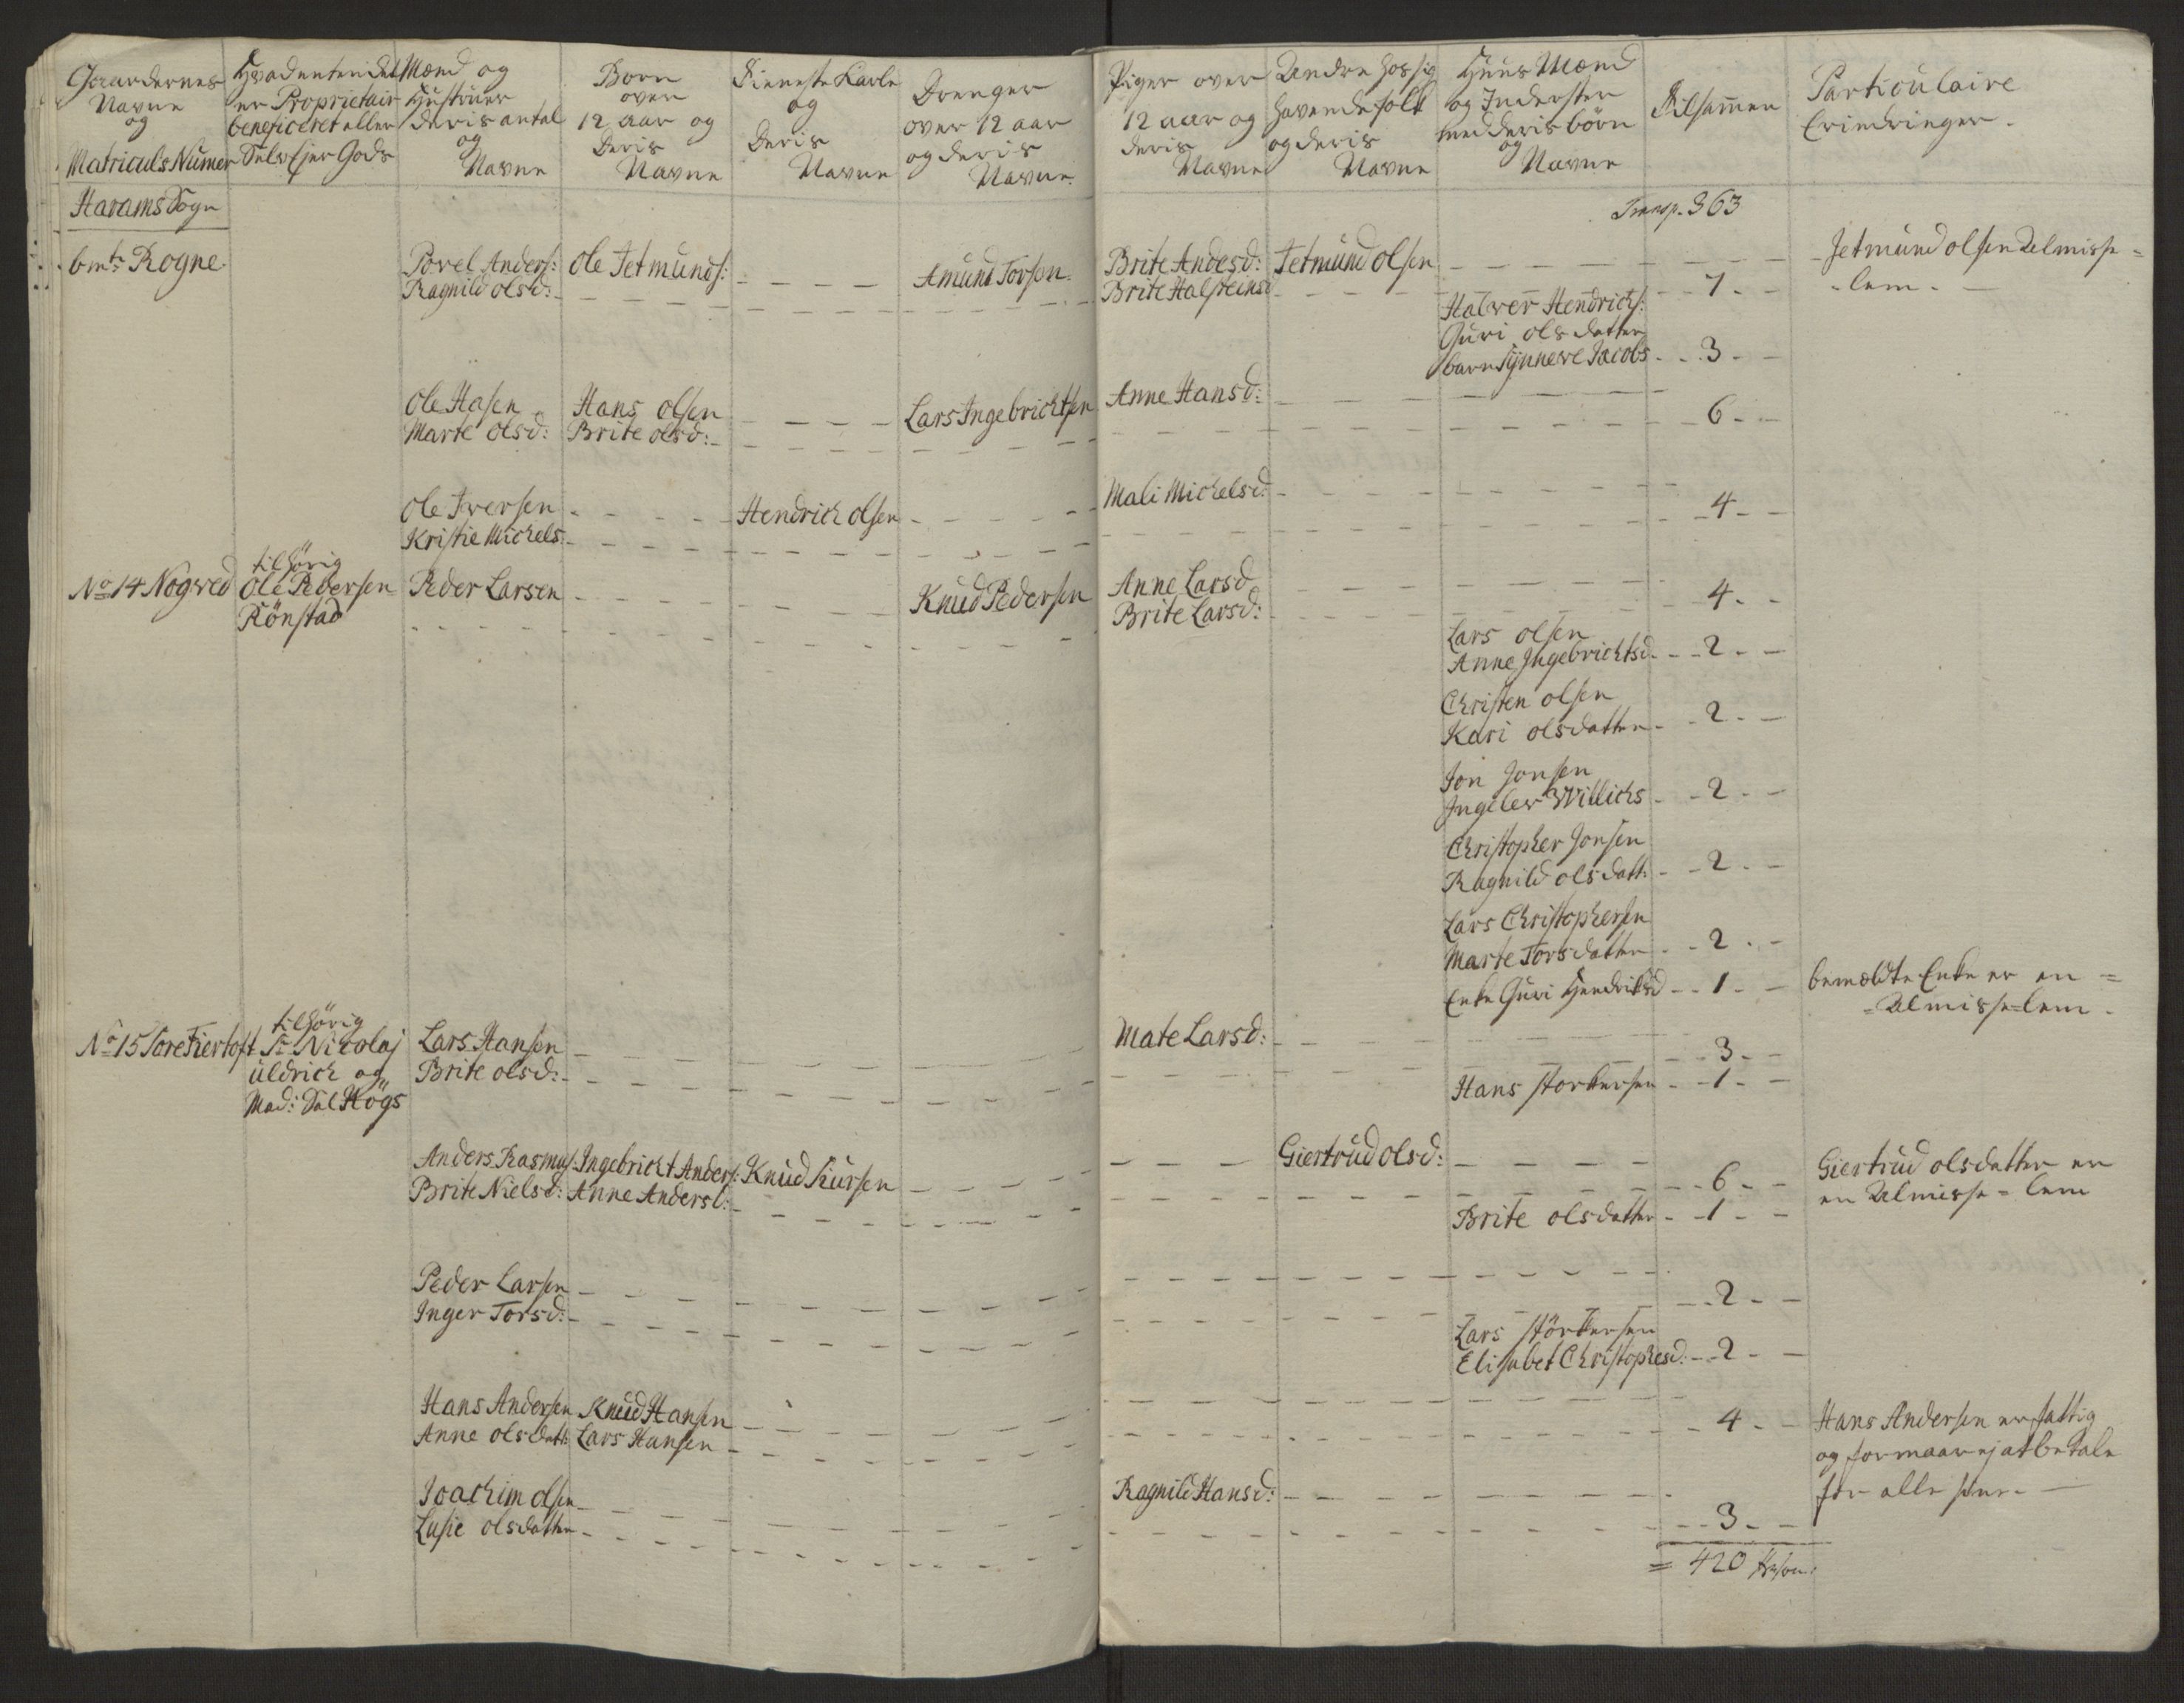 Gaardernes Navne og Matriculs Numer
Hvad enten det er Proprietair beneficeret eller Selv Ejer Gods
Mænd og Hustruer deris antal og Navne
Børn over 12 aar og Deris Navne
Tieneste Karle og Deris Navne
Drenger over 12 aar og deris Navne
Piger over 12 aar og deris Navne
Andre hos sig havende folk og deris Navne
Huus Mænd og Inderster med deris börn og Navne
Tilsamen
Particulaire Erindringer.
Harams Sogn
Transp. 363
bmte Rogne.
Povel Anders: Ole Jetmunds: Amund Torsen Brite Andesd: Jetmund olsen
Jetmund olsen Almisse=
Ragnild olsd: Brite Halsteinsd 7
=lem.
Halver Hendrichs:
Guri olsdatter
barn Synneve Jacobs 3
Ole Hasen Hans olsen Lars Ingebrichtsen Anne Hansd:
Marte olsd: Brite olsd: 6
Ole Iversen Hendrich olsen Mali Michelsd:
Kristie Michels: 4
No 14 Nogved
tilhörig
Ole Pedersen
Rönstad
Peder Larsen Knud Pedersen Anne Larsd
Brite Larsd: 4
Lars olsen
Anne Ingebrichtsd 2
Christen olsen
Kari olsdatter 2
Jon Jonsen
Ingelev Willichs 2
Christopher Jonsen
Ragnild olsdatt: 2
Lars Christophersen
Marte Torsdatter 2
Enke Guri Hendriksd 1
bemeldte Enke er en=
=Almisse=lem.
No 15 Tore Fiertoft
tilhörig
Sr Nicolaj
uldrich og
Mad: Sal Högs
Lars Hansen Mate Larsd:
Brite olsd: 3
Hans storkersen 1
Anders Rasmus: Ingebricht Anders: Knud Siursen Giertrud olsd:
Brite Nielsd: Anne Andersd: 6
Giertrud olsdatter er
en Almisse=lem
Brite olsdatter 1
Peder Larsen
Inger Torsd: 2
Lars störkersen
Elisabet Christophesd: 2
Hans Andersen Knud Hansen
Anne olsdatt: Lars Hansen 4
Hans Andersen er fattig
og formaar ej at betale
for alle sine.
Joachim olsen Ragnild Hansd:
Lusie olsdatter 3
= 420 Persone